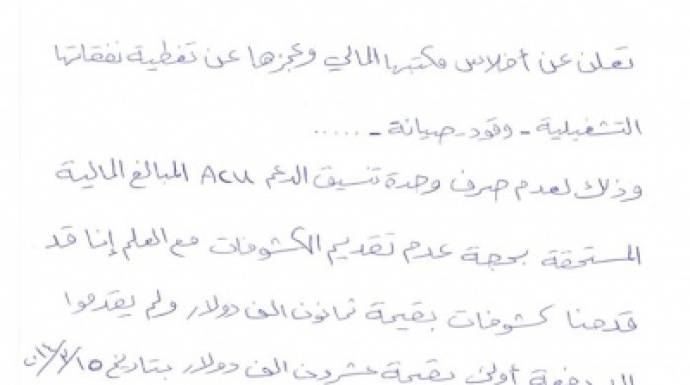 تعلن عن أفلاس مكتبها المالي وعجزها عن تغطية نفقاتها
التشغيلية - وقود - صيانة - .....
وذلك لعدم صرف وحدة تنسيق الدعم ACU المبالغ المالية
المستحقة بحجة عدم تقديم الكشوفات مع العلم إننا قد
قدمنا كشوفات بقيمة ثمانون الف دولار ولم يقدموا
دفعة أولى بقيمة عشرون الف دولار بتاريخ